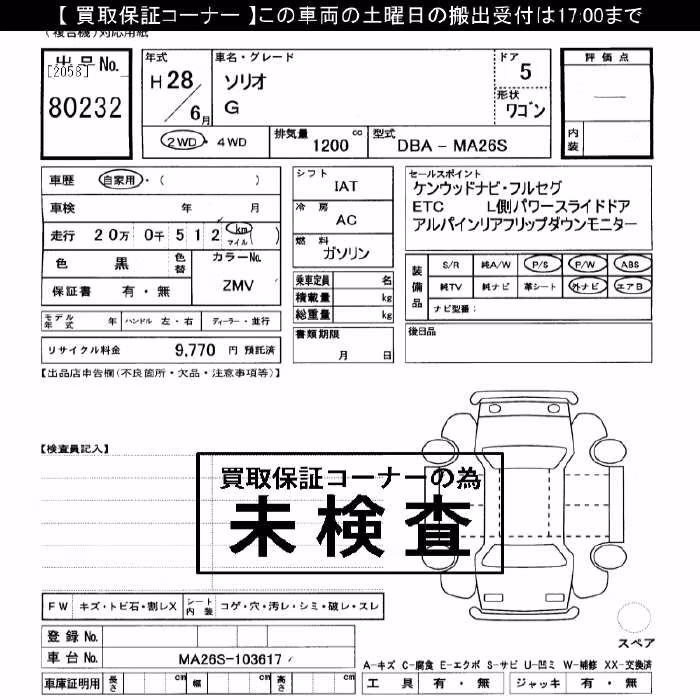 【 買取保証コーナー 】この車両の土曜日の搬出受付は17:00まで
(複合機)対応用紙
出品 No.
[2058]
80232
年式
H 28 / 6月
車名・グレード
ソリオ
G
ドア
5
形状
ワゴン
評価点
内装
2WD・4WD
排気量 1200 cc
型式 DBA - MA26S
車歴 自家用・( )
車検 年 月
走行 20万 0千 5 1 2 km マイル ( )
色 黒
色替
カラーNo.
ZMV
保証書 有・無
モデル年式 年 ハンドル 左・右 ディーラー・並行
リサイクル料金 9,770 円 預託済
シフト
IAT
冷房
AC
燃料
ガソリン
乗車定員 名
積載量 kg
総重量 kg
書類期限
月 日
セールスポイント
ケンウッドナビ・フルセグ
ETC L側パワースライドドア
アルパインリアフリップダウンモニター
装備品
S/R 純A/W P/S P/W ABS
純TV 純ナビ 革シート 外ナビ エアB
ナビ型番:
後日品
【出品店申告欄(不良箇所・欠品・注意事項等)】
【検査員記入】
買取保証コーナーの為
未検査
FW キズ・トビ石・割レX シート内装 コゲ・穴・汚レ・シミ・破レ・スレ
登録 No.
車台 No. MA26S-103617
車庫証明用 長さ cm 幅 cm 高さ cm
スペア
A-キズ C-腐食 E-エクボ S-サビ U-凹ミ W-補修 XX-交換済
工具 有・無 ジャッキ 有・無